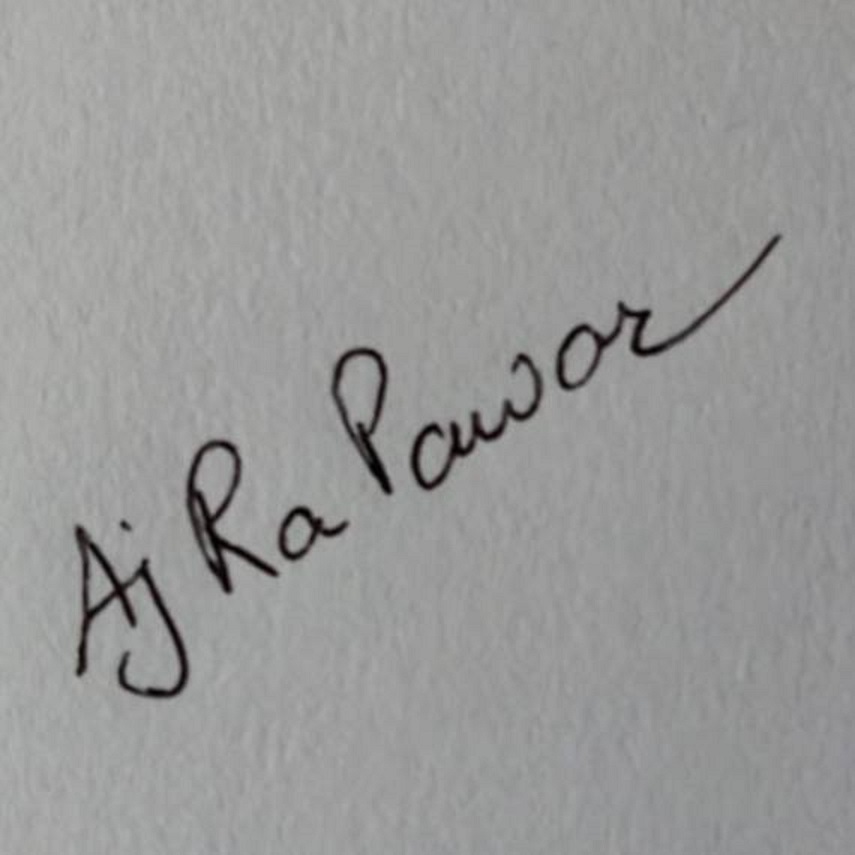 Aj Ra Pawar